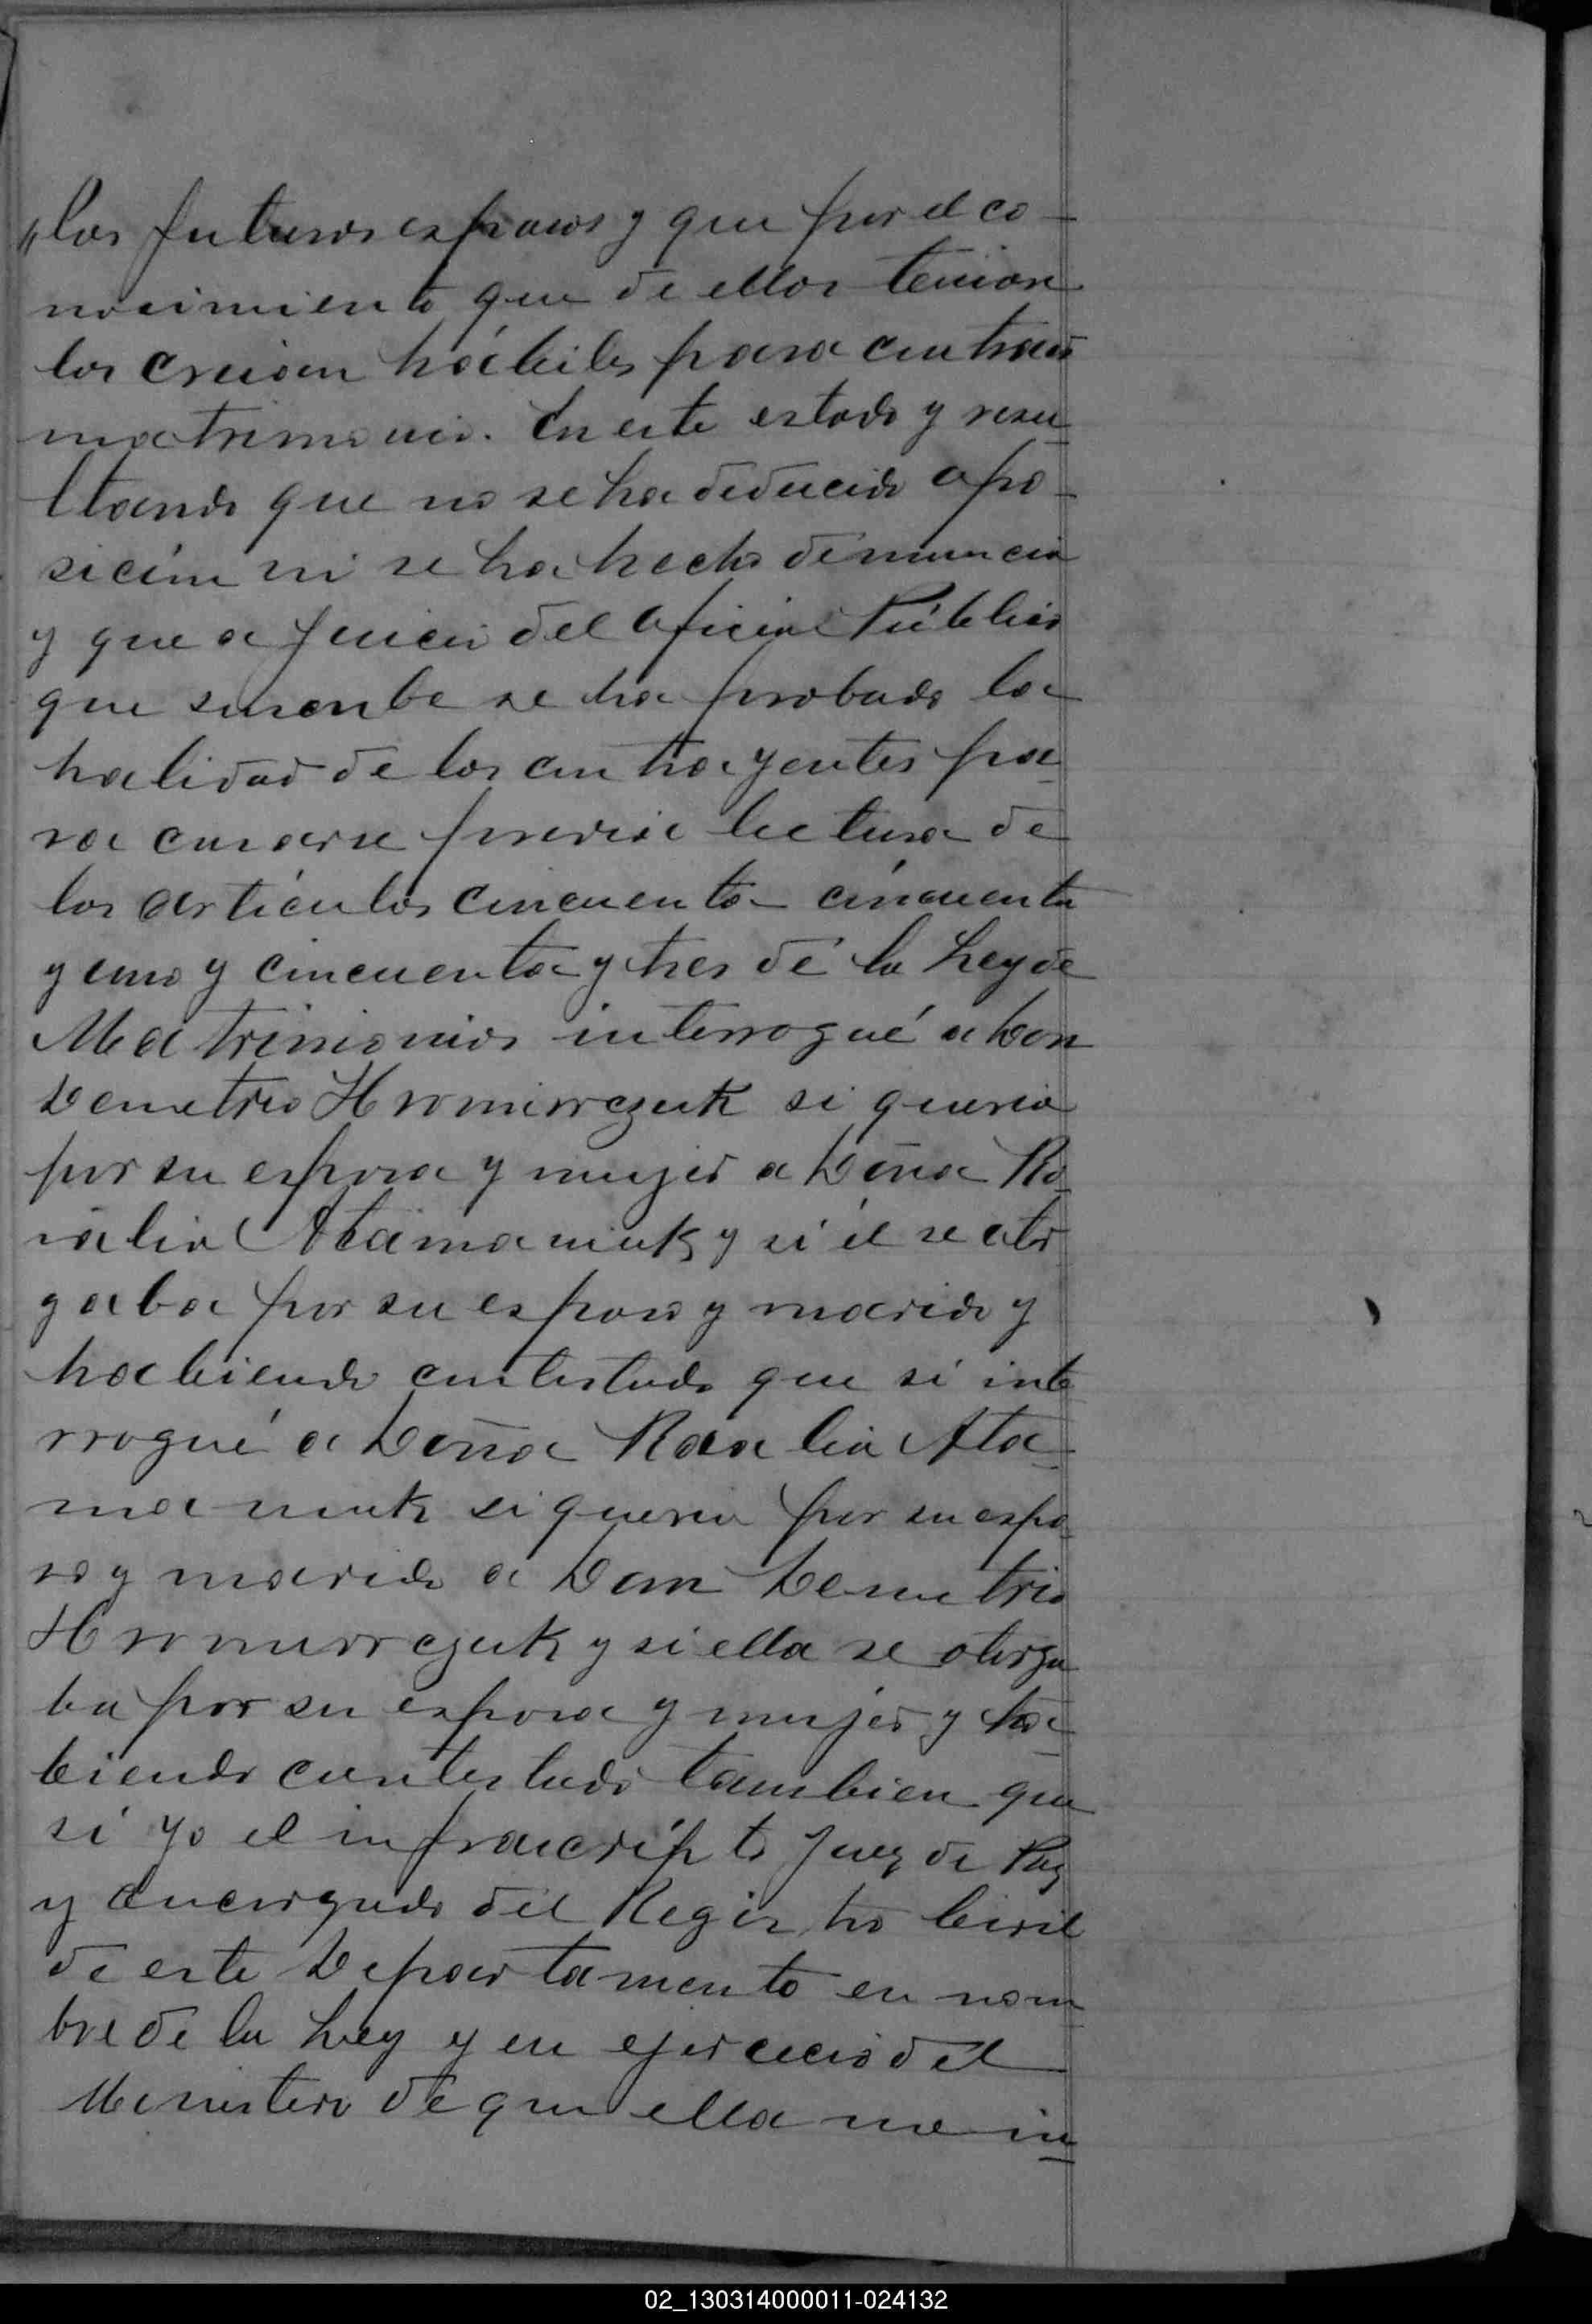 "los futuros esposos y que por el co-
nocimiento que de ellos tenian
los creian hábiles para contraer
matrimonio. En este estado y resu-
ltando que no se ha deducido opo-
sición ni se ha hecho denuncia
y que a juicio del Oficial Público
que suscribe se ha probado la
halidad de los contrayentes pa-
ra casarse previa lectura de
los artículos cincuenta- cincuenta
y uno y cincuenta y tres de la Ley de
Matrimonios interrogué a Don
Demetrio Hromirczuk si queria
por su esposa y mujer a Doña Ro-
salia Atamaniuk y si él se otor
gaba por su esposo y marido y
habiendo contestado que sí inte
rrogué a Doña Rosalia Ata-
maniuk si queria por su espo-
so y marido a Don Demetrio
Hromirczuk y si ella se otorga
ba por su esposa y mujer y ha-
biendo contestado tambien que
sí yo el infrascripto Juez de Paz
y encargado del Registro Civil
de este Departamento en nom
bre de la Ley y en ejercicio del
Ministerio de que ella me in-
02_130314000011-024132